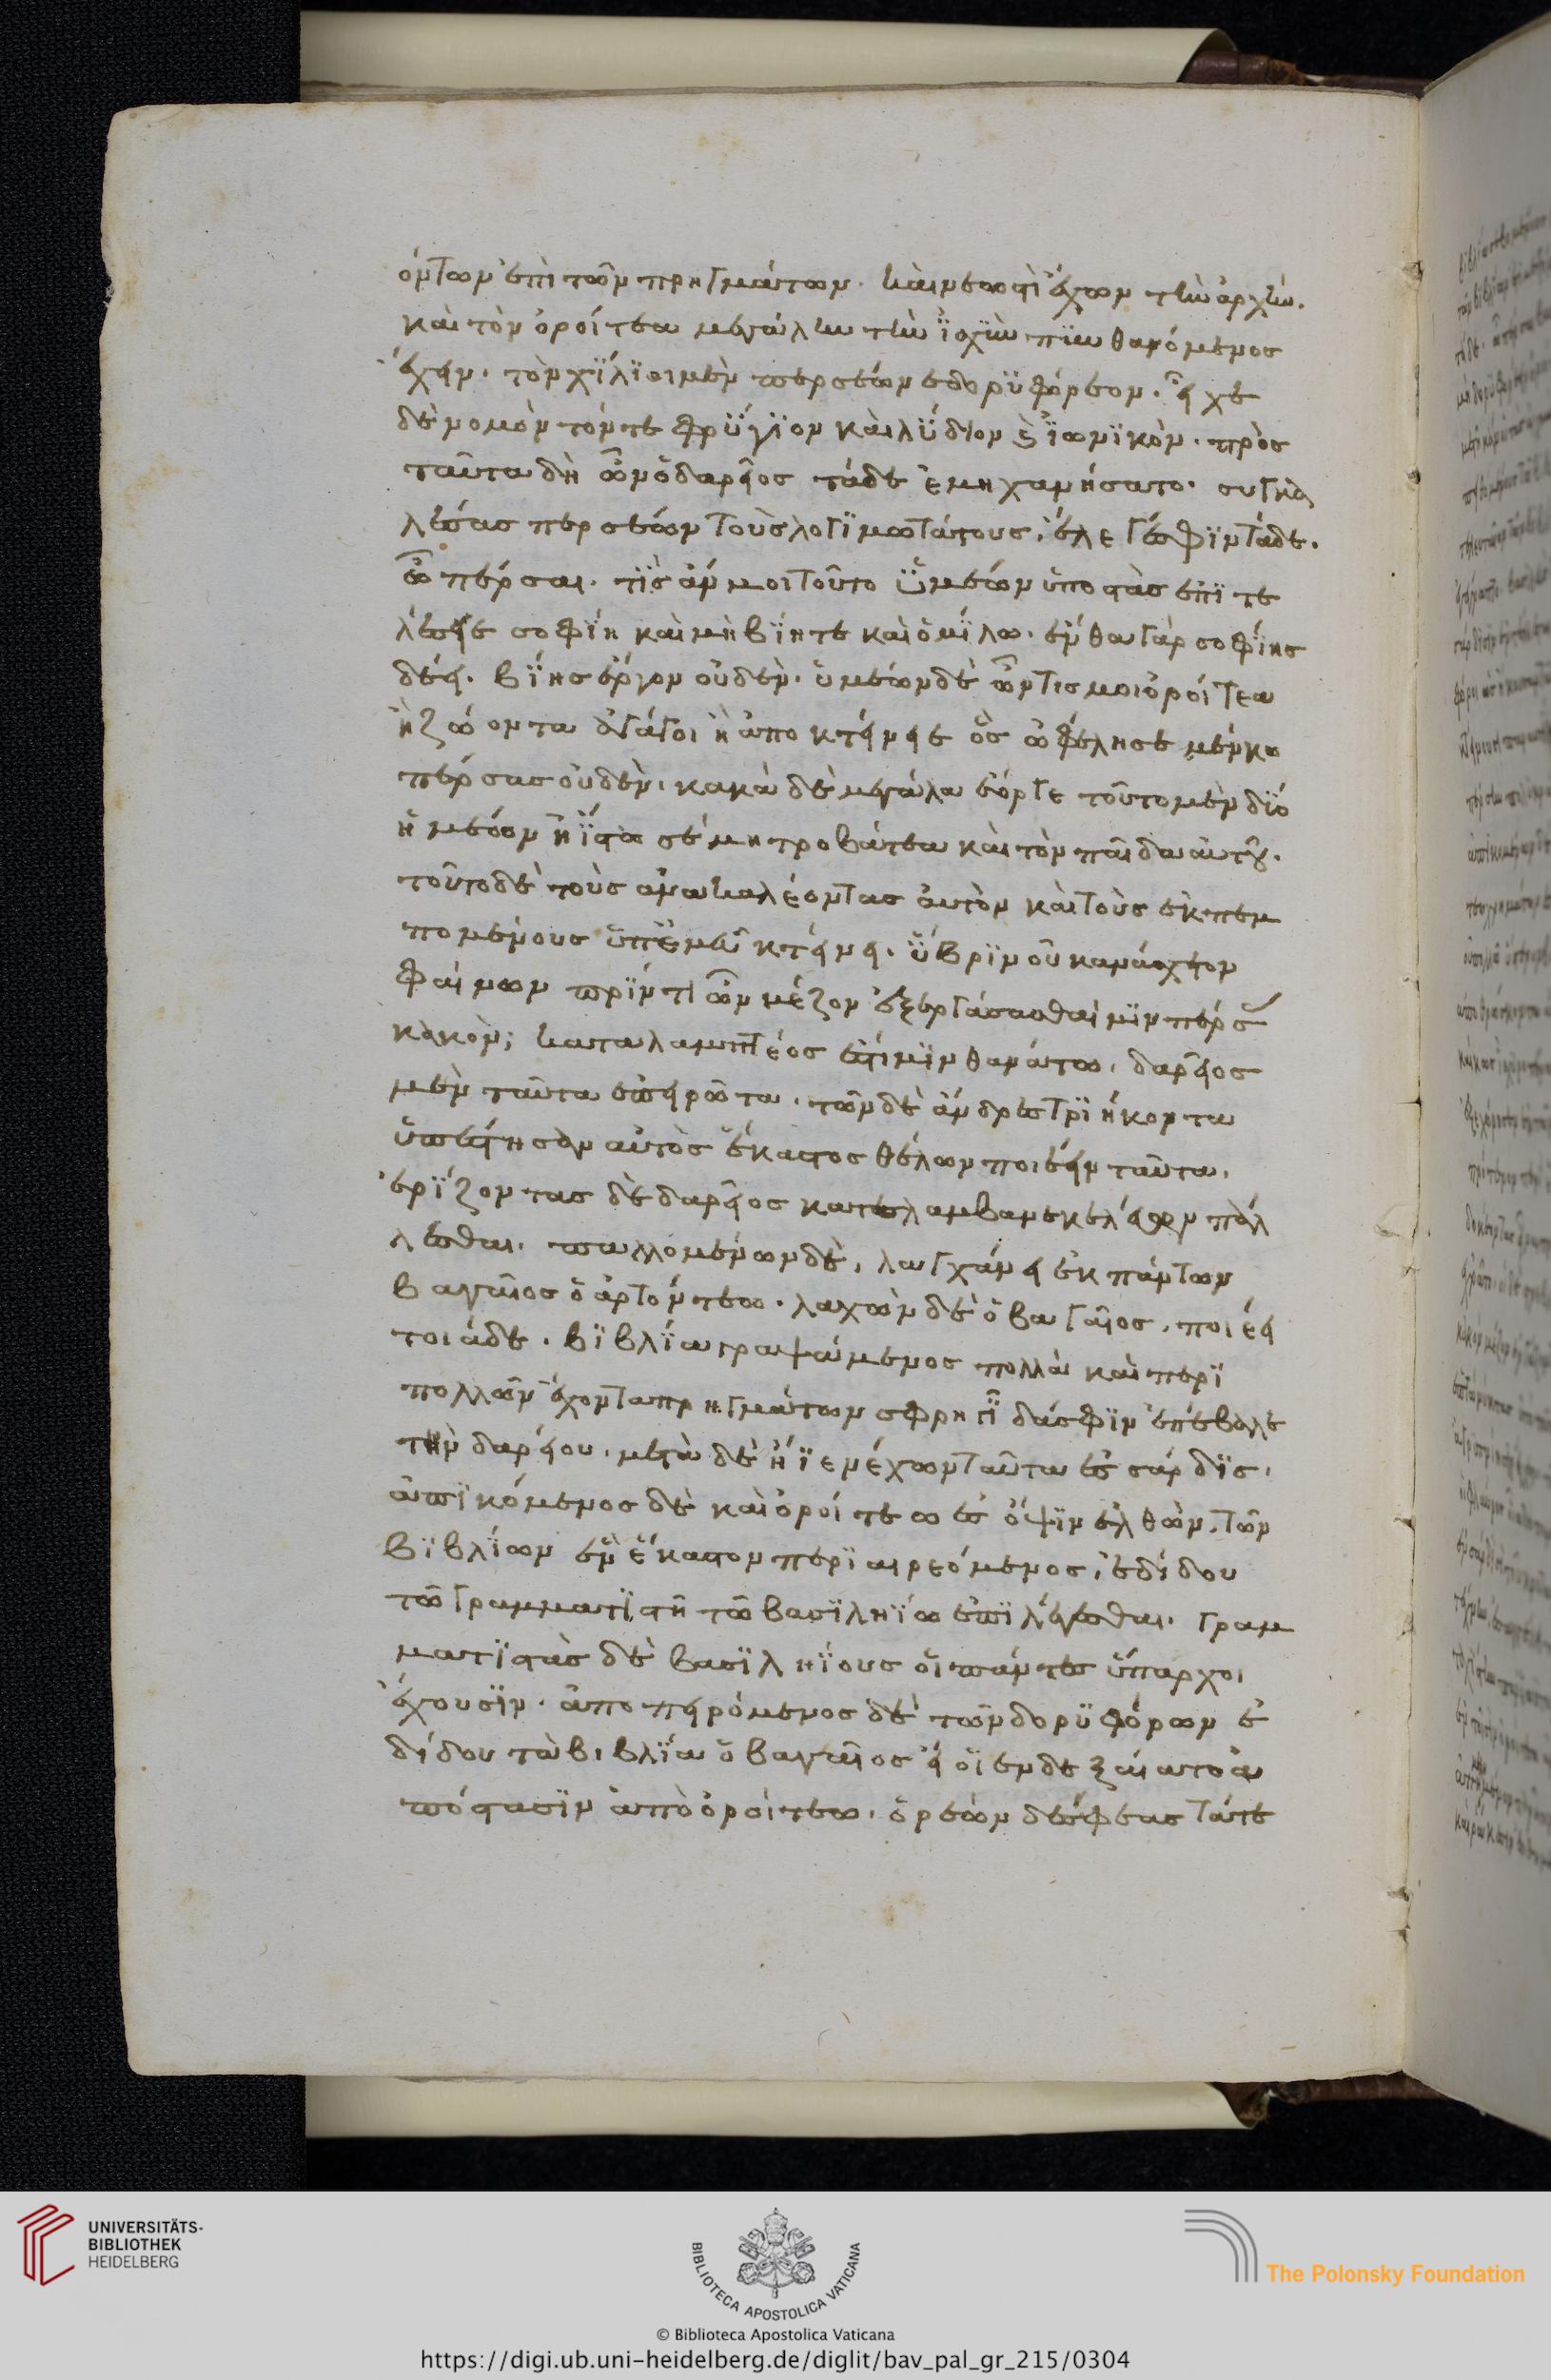 όντων ἐπὶ τῶν πρηγμάτων. καὶ νεωστὶ ἔχων τὴν ἀρχήν.
καὶ τὸν ὀροίτεα μεγάλην τὴν ἰσχὺν πυνθανόμενος
ἔχειν. τὸν χίλιοι μὲν περσέων ἐδορυφόρεον. εἶχε
δὲ νομὸν τόν τε φρύγιον καὶ λύδιον καὶ ἰωνικόν. πρὸς
ταῦτα δὴ ὦν ὁ δαρεῖος τάδε ἐμηχανήσατο. συγκα
λέσας περσέων τοὺς λογιμωτάτους, ἔλεγέ σφιν τάδε.
ὦ πέρσαι. τίς ἄν μοι τοῦτο ὑμέων ὑποστὰς ἐπιτε
λέσειε σοφίη καὶ μὴ βίῃ τε καὶ ὁμίλω. ἔνθα γὰρ σοφίης
δέει. βίης ἔργον οὐδέν. ὑμέων δὲ ὦν τίς μοι ὀροίτεα
ἢ ζώοντα ἀγάγοι ἢ ἀποκτείνειε ὃς ὠφέλησε μέν κω
πέρσας οὐδέν. κακὰ δὲ μεγάλα ἔοργε τοῦτο μὲν δύο
ἡμέων ἠΐστωσε μητροβάτεα καὶ τὸν παῖδα αὐτοῦ.
τοῦτο δὲ τοὺς ἀνακαλέοντας αὐτὸν καὶ τοὺς ἐκπεμ
πομένους ὑπ' ἐμεῦ κτείνει. ὕβριν οὐκ ἀνάσχετον
φαίνων πρίν τι ὦν μέζον ἐξεργάσασθαί μιν πέρσας
κακόν; καταλαμπτέος ἐστί μιν θανάτω. δαρεῖος
μὲν ταῦτα ἐπειρώτα. τῶν δὲ ἄνδρες τριήκοντα
ὑπέστησαν αὐτὸς ἕκαστος θέλων ποιέειν ταῦτα.
ἐρίζοντας δὲ δαρεῖος κατελάμβανε κελεύων πάλ
λεσθαι. παλλομένων δὲ, λαγχάνει ἐκ πάντων
βαγαῖος ὁ ἀρτόντεω. λαχὼν δὲ ὁ βαγαῖος, ποιέει
τοιάδε. βιβλία γραψάμενος πολλὰ καὶ περὶ
πολλῶν ἔχοντα πρηγμάτων σφρηγῖδά σφιν ἐπέβαλε
τὴν δαρείου. μετὰ δὲ ἤιε μέχων ταῦτα ἐς σάρδις.
ἀπικόμενος δὲ καὶ ὀροίτεω ἐς ὄψιν ἐλθών. τῶν
βιβλίων ἓν ἕκαστον περιαιρεόμενος, ἐδίδου
τῶ γραμματιστῆ τῶ βασιληίω ἐπιλέγεσθαι. γραμ
ματιστὰς δὲ βασιληίους οἱ πάντες ὕπαρχοι
ἔχουσιν. ἀποπειρόμενος δὲ τῶν δορυφόρων ἐ
δίδου τὰ βιβλία ὁ βαγαῖος εἴ οἱ ἐνδεξαίατο ἀ
πόστασιν ἀπὸ ὀροίτεω. ὁρέων δέ σφεας τά τε
UNIVERSITÄTS-
BIBLIOTHEK
HEIDELBERG
BIBLIOTECA APOSTOLICA VATICANA
The Polonsky Foundation
© Biblioteca Apostolica Vaticana
https://digi.ub.uni-heidelberg.de/diglit/bav_pal_gr_215/0304